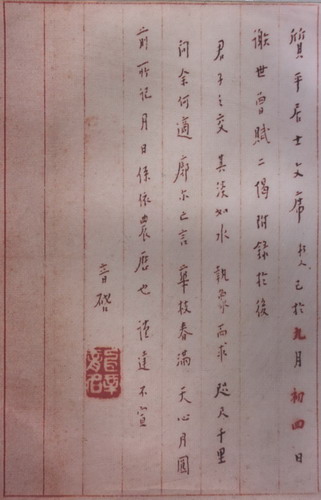 質平居士文席 朽人已於九月初四日
謝世曾賦二偈附錄於後
君子之交 其淡如水 執象而求 咫尺千里
問余何適 廓尔亡言 華枝春滿 天心月圓
前所記月日係依農曆也 謹達不宣
音啓